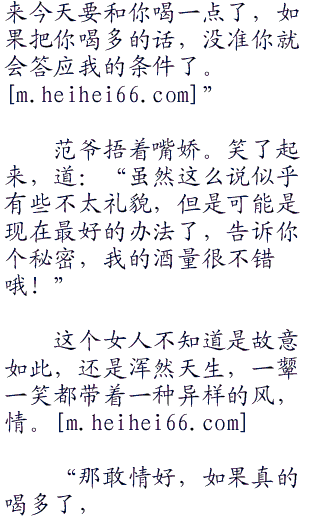 来今天要和你喝一点了，如
果把你喝多的话，没准你就
会答应我的条件了。
[m.heihei66.com]”
范爷捂着嘴娇。笑了起
来，道：“虽然这么说似乎
有些不太礼貌，但是可能是
现在最好的办法了，告诉你
个秘密，我的酒量很不错
哦！”
这个女人不知道是故意
如此，还是浑然天生，一颦
一笑都带着一种异样的风，
情。[m.heihei66.com]
“那敢情好，如果真的
喝多了，